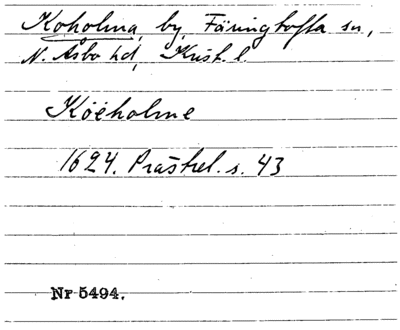 Koholma, by, Färingtofta sn,
N. Åsbo hd, Krist. l.
Köeholme
1624. Prästrel. s. 43
Nr 5494.